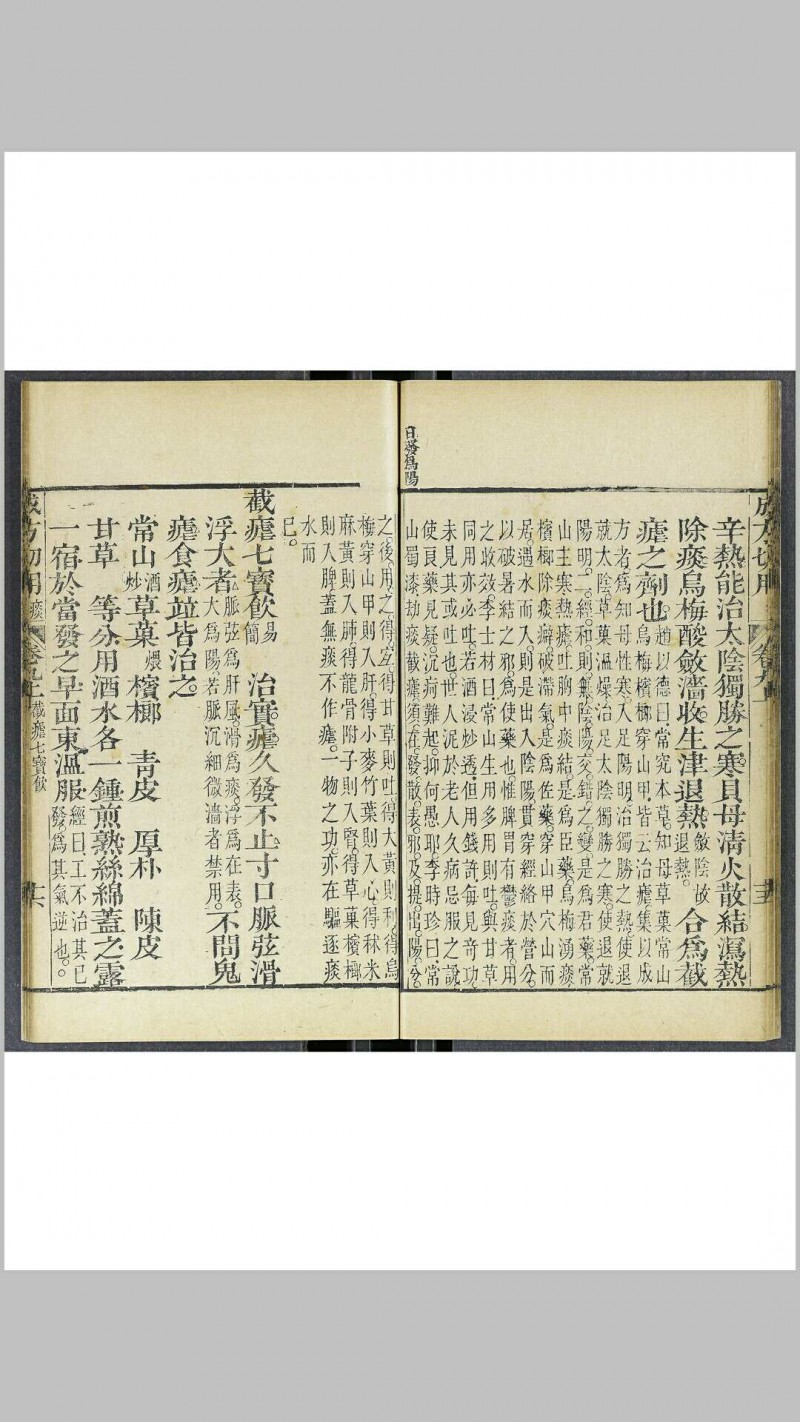 日發爲陽
成方切用 卷九上
辛熱能治太陰獨勝之寒貝母清火散結瀉熱
除痰烏梅酸斂濇收生津退熱。斂陰故退熱。合爲截
瘧之劑也。趙以德曰。常究本草。知母草菓常山
烏梅檳榔穿山甲。皆云治瘧集以成
方者爲知母性寒入足陽明治獨勝之熱使退
就太陰草菓溫燥治足太陰獨勝之寒。使退就
陽明。二經和。則無陰陽交錯之變。是爲君藥。常
山主寒熱瘧。吐胸中痰結。是爲臣藥。烏梅湧痰
檳榔除痰癖。破滯氣。是爲佐藥。穿山甲穴山而
居。遇水而入。則是出入陰陽。貫穿經絡於營分。
以破暑結之邪。爲使藥也。惟脾胃有鬱痰者。用
之收效。李士材曰。常山生用多用則吐。與甘草
同用亦必吐。若酒浸炒透。但用錢許。每見奇功
未見其或吐也。世人泥於老人久病忌服之說
使良藥見疑。沉疴難起。抑何愚耶。李時珍曰。常
山蜀漆劫痰截瘧。須在發散表邪。及提出陽分。
之。後用之得宜。得甘草則吐。得大黃則利。得烏
梅穿山甲則入肝。得小麥竹葉則入心。得秫米
麻黃則入肺。得龍骨附子則入腎。得草菓檳榔
則入脾。蓋無痰不作瘧。一物之功。亦在驅逐痰
水而
已。
截瘧七寶飲 易簡 治實瘧久發不止寸口脈弦滑
浮大者 脈弦爲肝風。滑爲痰。浮爲在表。
大爲陽。若脈沉細微濇者禁用。不問鬼
瘧食瘧竝皆治之。
常山 酒炒 草菓 煨 檳榔 青皮 厚朴 陳皮
甘草 等分用酒水各一鍾煎熟絲綿蓋之露
一宿於當發之早面東溫服 經曰。工不治其已
發。爲其氣逆也。
成方切用 痰 卷九上 截瘧七寶飲 十六